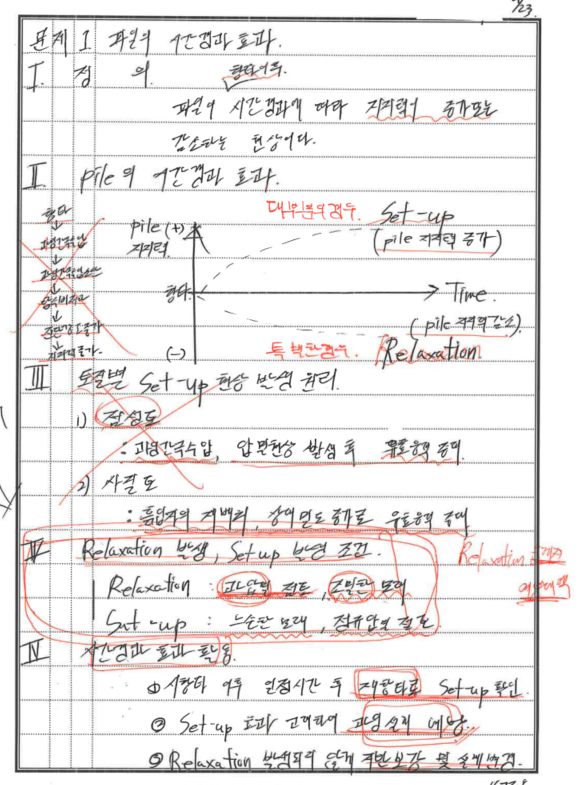 1/23.
문제 1 파일의 시간경과 효과.
I. 정 의. 항타이후.
파일이 시간경과에 따라 지지력이 증가 또는
감소하는 현상이다.
II pile의 시간경과 효과.
항타
↓
과잉간극수압
↓
과잉간극수압소산
↓
↓
전단강도증가
↓
지지력증가.
pile (+)
지지력
대부분의 경우. Set-up
(pile 지지력 증가)
항타 Time.
(pile 지지력감소).
(-) 특별한경우. Relaxation
III 토질별 Set-up 현상 발생 원리.
1) 점성토
: 과잉간극수압, 압밀현상 발생 후 유효응력 증대.
2) 사질토
: 흙입자의 재배치, 상대밀도 증가로 유효응력 증대
IV Relaxation 발생, Set up 발생 조건. Relaxation
Relaxation : 과압밀 점토, 조밀한 모래
Set-up : 느슨한 모래, 정규압밀 점토.
IV 시간경과 효과 활용.
① 시항타 이후 일정시간 후 재항타로 Set-up 확인.
② Set-up 효과 고려하여 과잉설계 예방.
③ Relaxation 발생되지 않게 지반보강 및 설계변경.